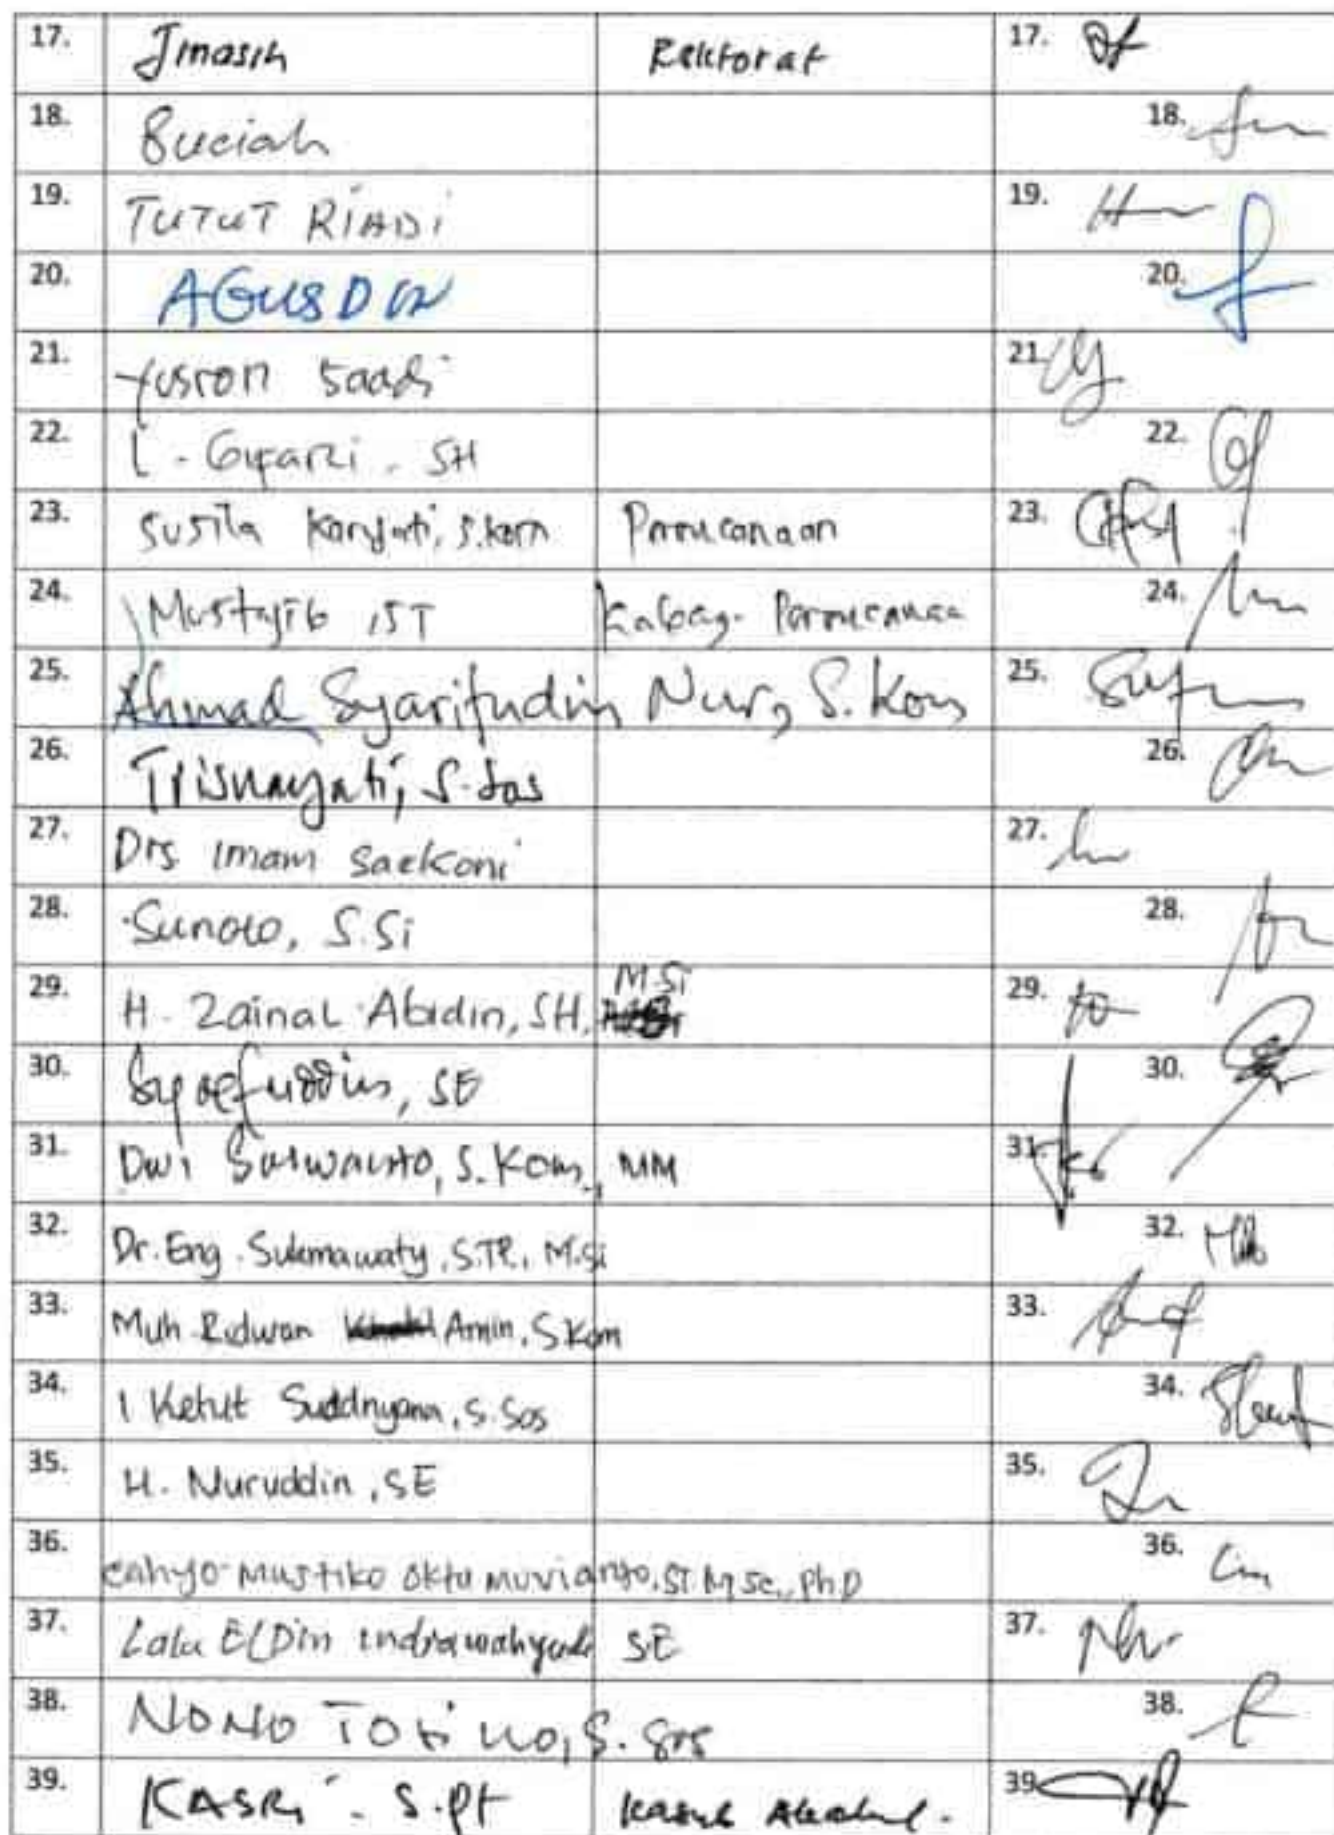 17. Jmasih Rektorat 17.
18. Suciah 18.
19. TUTUT RIADI 19.
20. AGUSDIN 20.
21. Yusron Saadi 21.
22. L. Gifari. SH 22.
23. Susila Karyati, S.kom Perencanaan 23.
24. Mustajib, ST Kabag. Perencanaa 24.
25. Ahmad Syarifudin Nur, S.Kom 25.
26. Trisnayati, S.Sos 26.
27. Drs Imam Saekoni 27.
28. Sunoto, S.Si 28.
29. H. Zainal Abidin, SH, M.Si 29.
30. Syaefuddin, SE 30.
31. Dwi Suswanto, S.Kom., MM 31.
32. Dr. Eng. Sukmawaty, S.TP., M.Si 32.
33. Muh. Ridwan Amin, S.Kom 33.
34. I Ketut Suddnyana, S.Sos 34.
35. H. Nuruddin, SE 35.
36. Cahyo Mustiko Okta Muvianto, ST, M.Sc., Ph.D 36.
37. Lalu ELDin Indrawahyudi SE 37.
38. NONO TOTiNO, S.Sos 38.
39. KASRi. S.Pt 39.